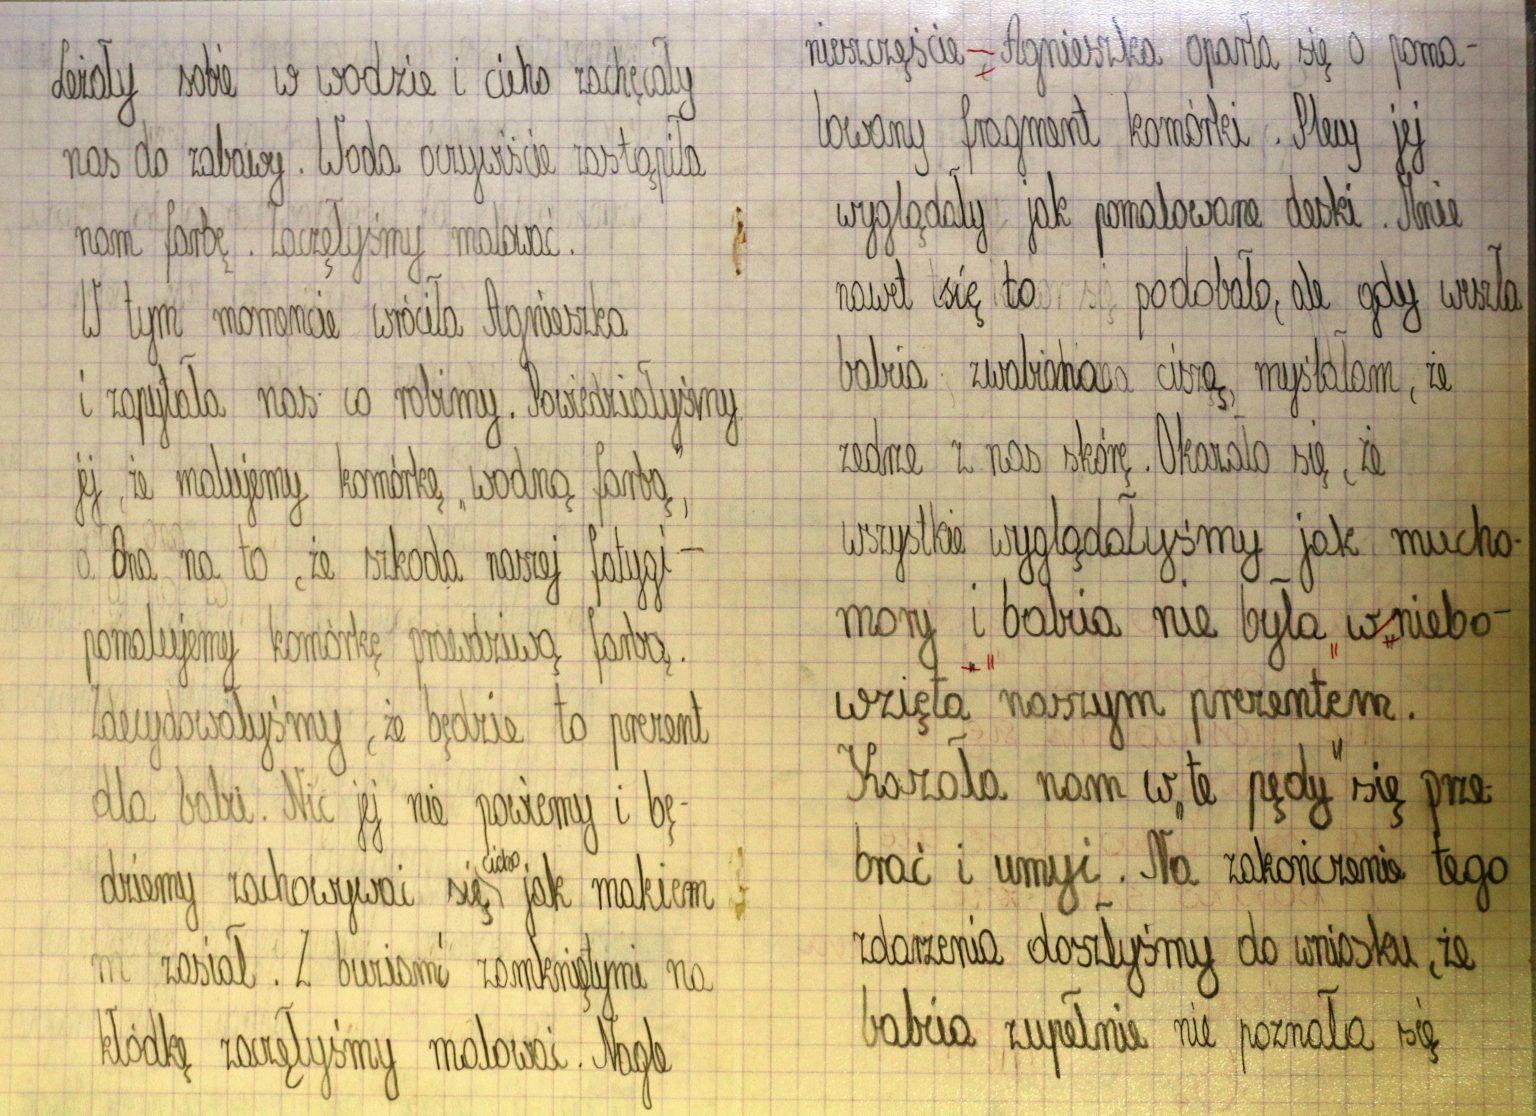 Leżały sobie w wodzie i cicho zachęcały
nas do zabawy. Woda oczywiście zastąpiła
nam farbę. Zaczęłyśmy malować.
W tym momencie wróciła Agnieszka
i zapytała nas co robimy. Powiedziałyśmy
jej, że malujemy komórkę „wodną farbą",
Ona na to, że szkoda naszej fatygi –
pomalujemy komórkę prawdziwą farbą.
Zdecydowałyśmy, że będzie to prezent
dla babci. Nic jej nie powiemy i bę-
dziemy zachowywać się cicho jak makiem
zasiał. Z buziami zamkniętymi na
kłódkę zaczęłyśmy malować. Nagle
nieszczęście – Agnieszka oparła się o poma-
lowany fragment komórki. Plecy jej
wyglądały jak pomalowane deski. Mnie
nawet się to podobało, ale gdy wyszła
babcia zwabiona ciszą, myślałam, że
zedrze z nas skórę. Okazało się, że
wszystkie wyglądałyśmy jak mucho-
mory i babcia nie była „w niebo-
wzięta" naszym prezentem.
Kazała nam w „te pędy" się prze-
brać i umyć. Na zakończenie tego
zdarzenia doszłyśmy do wniosku, że
babcia zupełnie nie poznała się